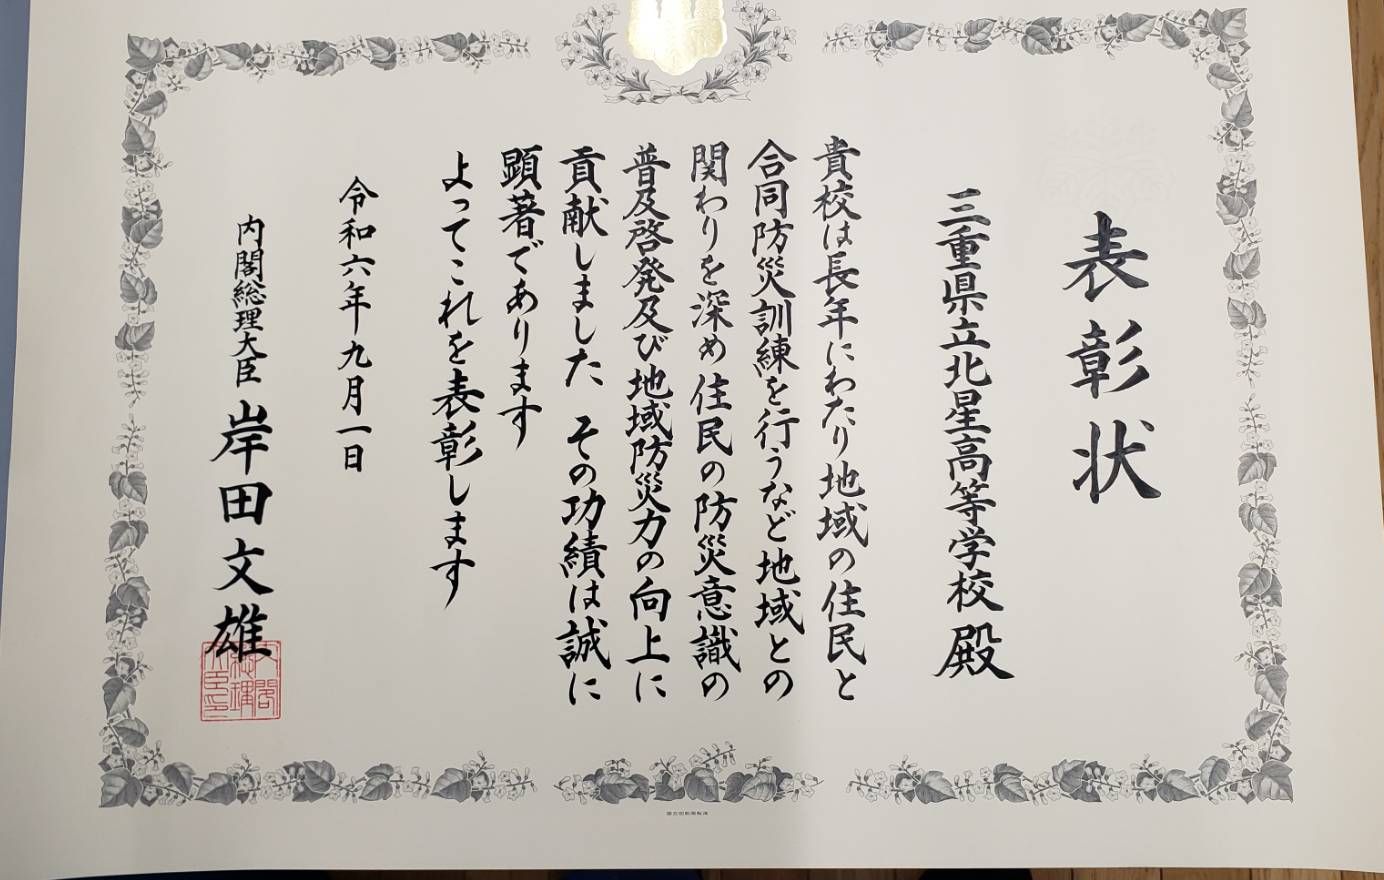 表彰状
三重県立北星高等学校殿
貴校は長年にわたり地域の住民と
合同防災訓練を行うなど地域との
関わりを深め住民の防災意識の
普及啓発及び地域防災力の向上に
貢献しました その功績は誠に
顕著であります
よってこれを表彰します
令和六年九月一日
内閣総理大臣 岸田文雄
内閣総理大臣印